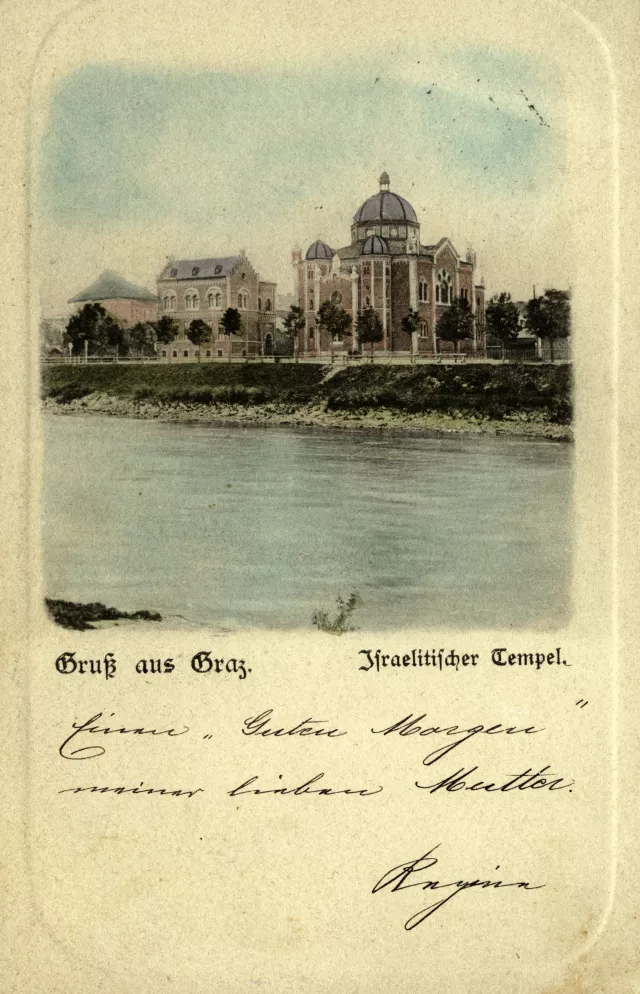 Gruß aus Graz.
Israelitischer Tempel.
Einen „Guten Morgen"
meiner lieben Mutter.
Regine